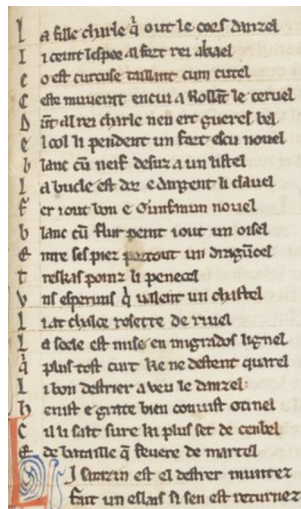 L a fille charle q̃ out le cors danzel
L i ceint lespee al fort rei akael
C o est curcuse taillant cum cutel
C este muverat encui a Rollãt le cervel
D ũt al rei charle nen ert gueres bel
E l col li pendent un fort escu novel
b lanc cũ neif desuz a un listel
L a bucle est dor e dargent li clavel
f er iout bon e Gunfanun novel
b lanc cũ flur peint iout un oisel
E ntre ses piez portout un draguncel
t reskas poinz li penecel
V ns esperuns q̃ valent un chastel
L i at chalce rosette de rivel
L a sele est mise en migrados lignel
q̃ plus tost curt ke ne destent quarel
L i bon destrier a veu le danzel
h enist e grate bien conuist otinel
C il li salt sure ki plus set de cenbel
E de bataille q̃ feuere de martel
L I sarazin est el destrer muntez
fait un eslais si sen est returnez